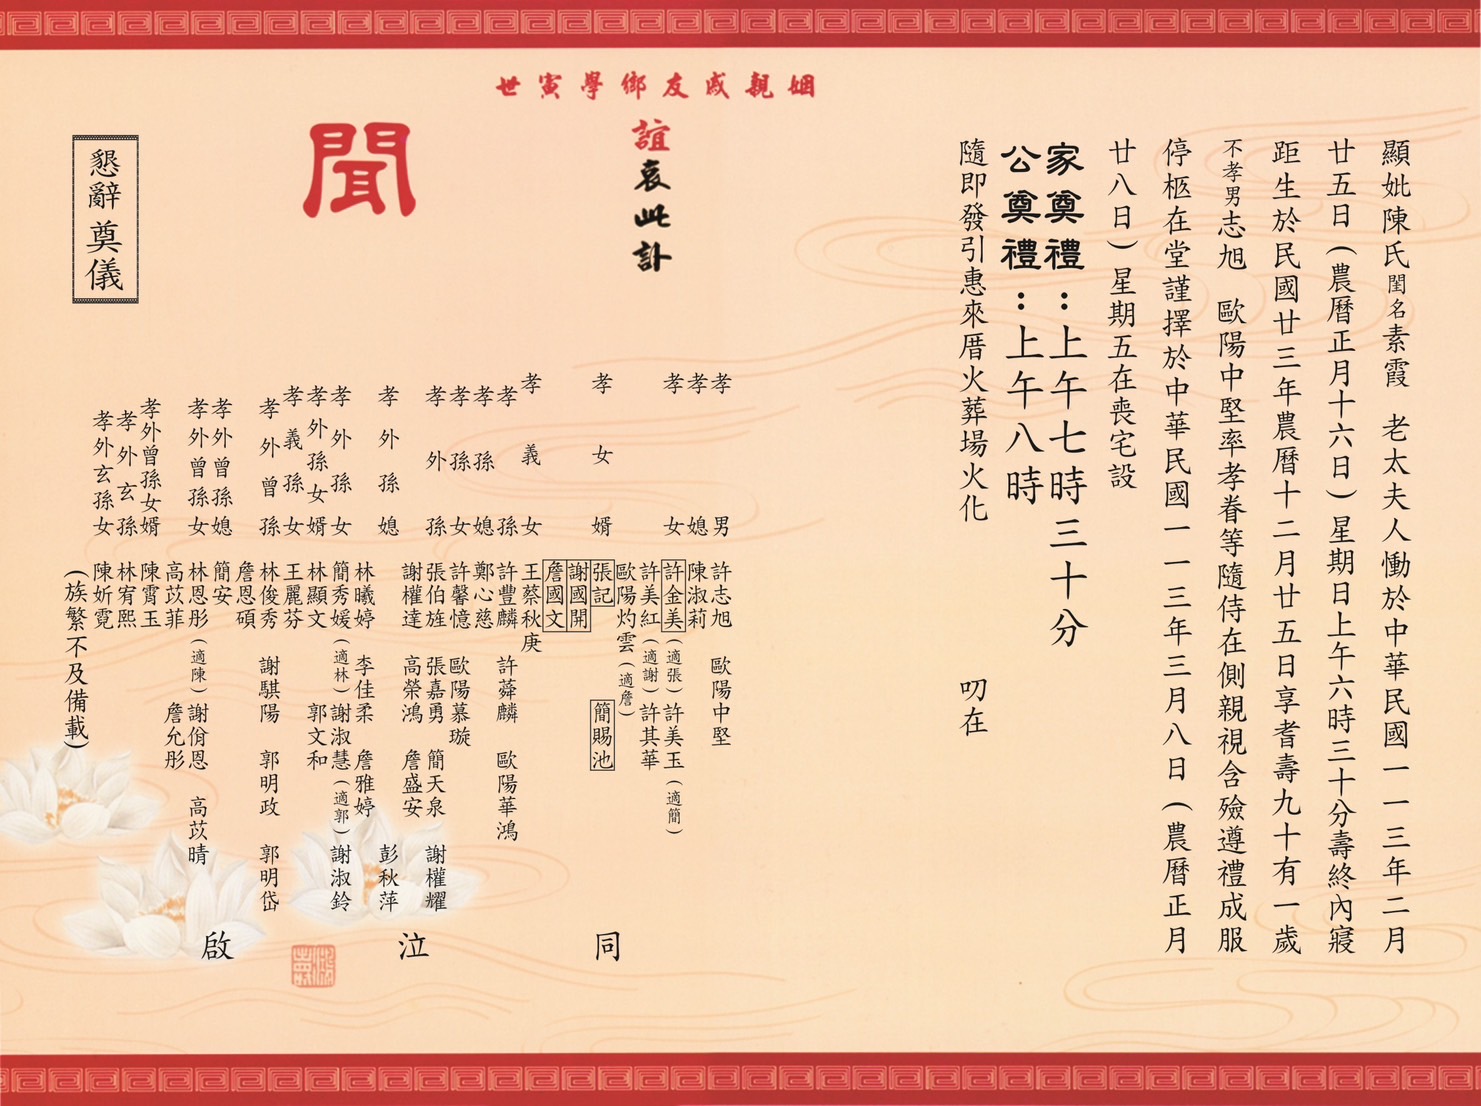 顯妣陳氏閨名素霞　老太夫人慟於中華民國一一三年二月
廿五日(農曆正月十六日)星期日上午六時三十分壽終內寢
距生於民國廿三年農曆十二月廿五日享耆壽九十有一歲
不孝男志旭　歐陽中堅率孝眷等隨侍在側親視含殮遵禮成服
停柩在堂謹擇於中華民國一一三年三月八日(農曆正月
廿八日)星期五在喪宅設
家奠禮：上午七時三十分
公奠禮：上午八時
隨即發引惠來厝火葬場火化　叨在
姻親戚友鄉學寅世
誼哀此訃
聞
懇辭奠儀
孝男　許志旭　歐陽中堅
孝媳　陳淑莉
孝女　許金美(適張)許美玉(適簡)
許美紅(適謝)許其華
歐陽灼雲(適詹)
孝女婿　張記　簡賜池
謝國開
詹國文
孝義女　王蔡秋庚
孝孫　許豐麟　許薢麟　歐陽華鴻
孝孫媳　鄭心慈
孝孫女　許馨憶　歐陽慕璇
孝外孫　張伯旌　張嘉勇　簡天泉　謝權耀
謝權達　高榮鴻　詹盛安
孝外孫媳　彭秋萍
林曦婷　李佳柔　詹雅婷
孝外孫女　簡秀媛(適林)謝淑慧(適郭)謝淑鈴
孝外孫女婿　林顯文　郭文和
孝義孫女　王麗芬
孝外曾孫　林俊秀　謝騏陽　郭明政　郭明岱
詹恩碩
孝外曾孫媳　簡安
孝外曾孫女　林恩彤(適陳)謝佾恩　高苡晴
高苡菲　詹允彤
孝外曾孫女婿　陳霄玉
孝外玄孫　林宥熙
孝外玄孫女　陳妡霓
(族繁不及備載)
同　泣　啟